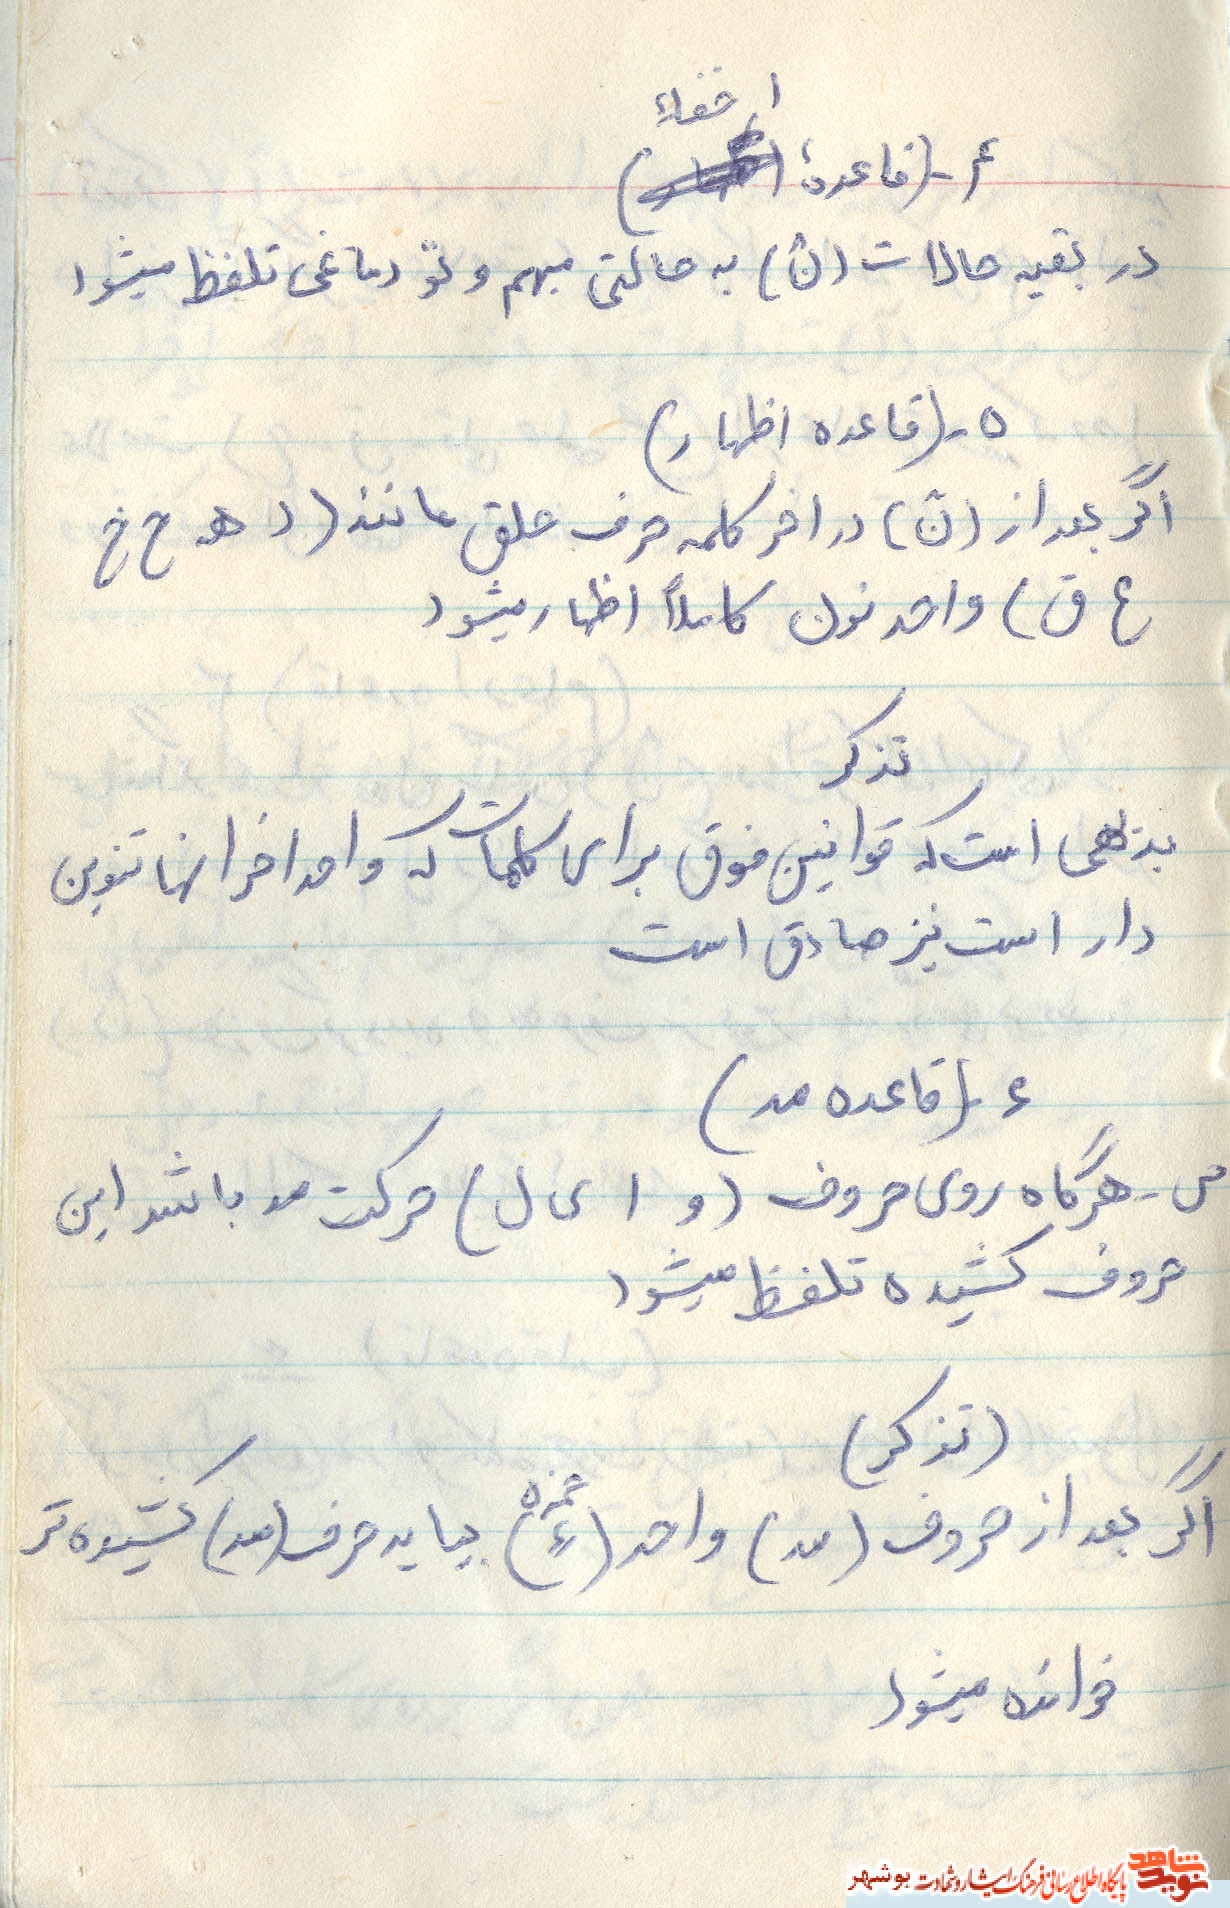 اخفاء
۴-(قاعدهٔ )
در بقیه حالات (نْ) به حالتی مبهم و تو دماغی تلفظ میشود
۵-(قاعده اظهار)
اگر بعد از (نْ) در اخر کلمه حرف حلق مانند (ء هـ ح خ
ع ق) واحد نون کاملاً اظهار میشود
تذکر
بدیهی است که قوانین فوق برای کلمات که واحد اخر انها تنوین
دار است نیز صادق است
۶-(قاعده مد)
س- هرگاه روی حروف (و ا ی ل) حرکت مد باشد این
حروف کشیده تلفظ میشود
(تذکر)
همزه
اگر بعد از حروف (مد) واحد (ء) بیاید حرف (مد) کشیده تر
خوانده میشود
نوید شاهد
پایگاه اطلاع رسانی فرهنگ ایثار و شهادت بوشهر